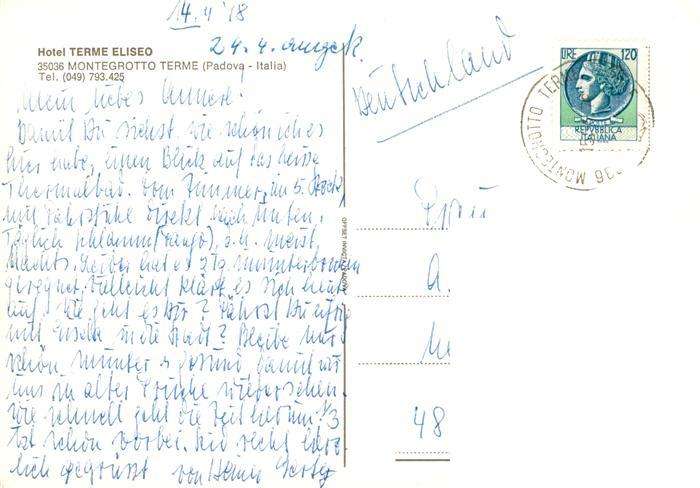 14.4.78
24.4. angek
Hotel TERME ELISEO
35036 MONTEGROTTO TERME (Padova - Italia)
Tel. (049) 793.425
Mein liebes
Damit Du siehst, wie schön ich es
hier habe, einen Blick auf das heisse
Thermalbad. Vom Zimmer, im 5. Stock
mit Fahrstuhl direkt nach unten.
Täglich Schlamm (Fango), o.k. meist
Nachts. Leider hat es
geregnet. Vielleicht klärt es sich heute
auf. Wie geht es Dir? Fährst Du oft
mit Gisela in die Stadt? Bleibe mir
schön munter & gesund, damit wir
uns in alter Frische wiedersehen.
Wie schnell geht die Zeit herum. 1/3
ist schon vorbei. Sei recht herz-
lich gegrüsst von Deiner
Deutschland
LIRE 120
REPVBBLICA
ITALIANA
MONTEGROTTO TERME
OFFSET
48